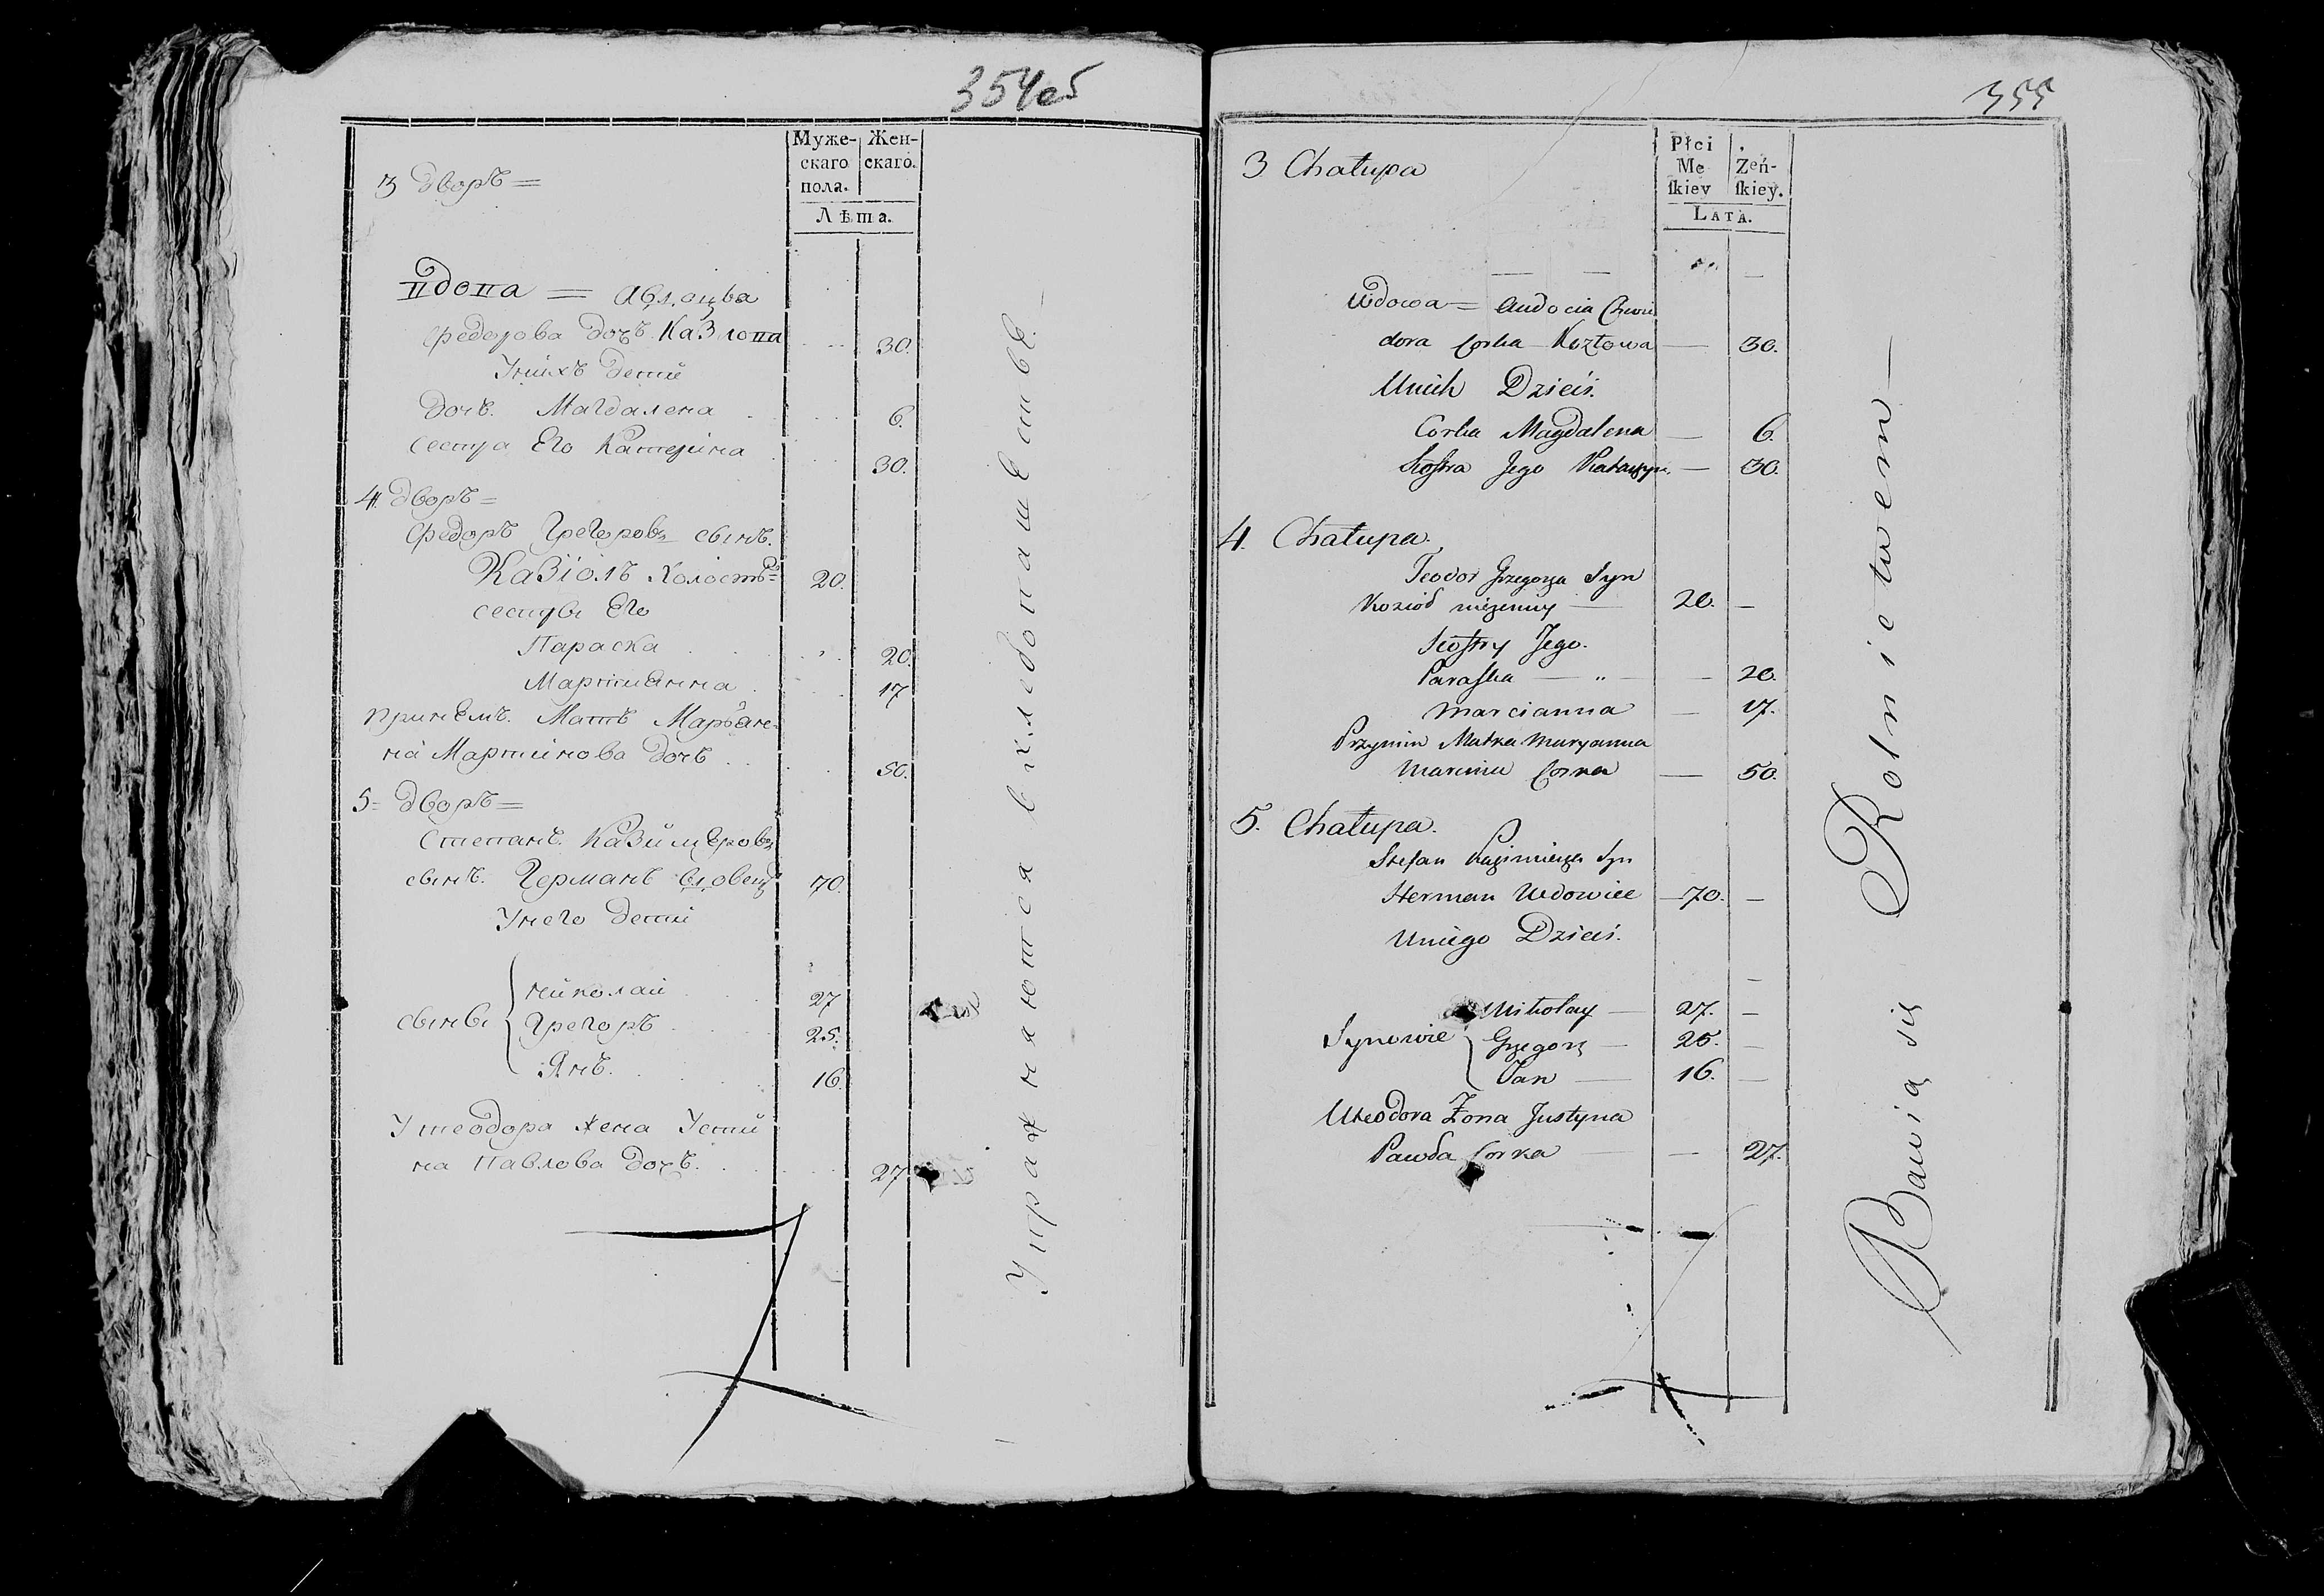 354об
Муже-
скаго
пола.
Жен-
скаго.
Лѣта.
3 дворъ =
вдова =
федорова дочь Казлова 30.
У них детей
дочь. Магдалена 6.
сестра Его Катерина 30.
4. дворъ =
Федоръ Грегоровъ сынъ.
Казіолъ Холостъ 20.
сестры Его
Параска 20.
Мартианна 17
Мать Марьян-
на Мартинова дочь 50.
5 = дворъ =
Степанъ. Казимеровъ
сынъ. Германъ вдовец 70.
Унего детей
сыны { николай 27
Грегоръ 25.
Янъ. 16.
У теодора жена Усти
на Павлова дочь. 27
Упражняются в хлебопашестве.
355
Płci
Mę
ſkiey
Zeń-
ſkiey.
LATA.
3 Chałupa
Wdowa = Audocia
dora Corka Kozłowa — 30.
Unich Dzieci.
Corka Magdalena — 6.
Siostra Jego — 30.
4. Chałupa.
Teodor Grzegorza Syn
Kozioł nieżenny — 20. —
Siostry Jego.
Paraſka — „ — 20.
Marcianna — 17.
Przymin Matka Maryanna
Marcina Corka — 50.
5. Chałupa.
Stefan Kazimierza Syn
Herman Wdowiec — 70. —
Uniego Dzieci.
Synowie { Mikołay — 27. —
Grzegorz — 25. —
Jan — 16. —
Uteodora Żona Justyna
Pawła Corka — — 27.
Bawią się Rolnictwem —